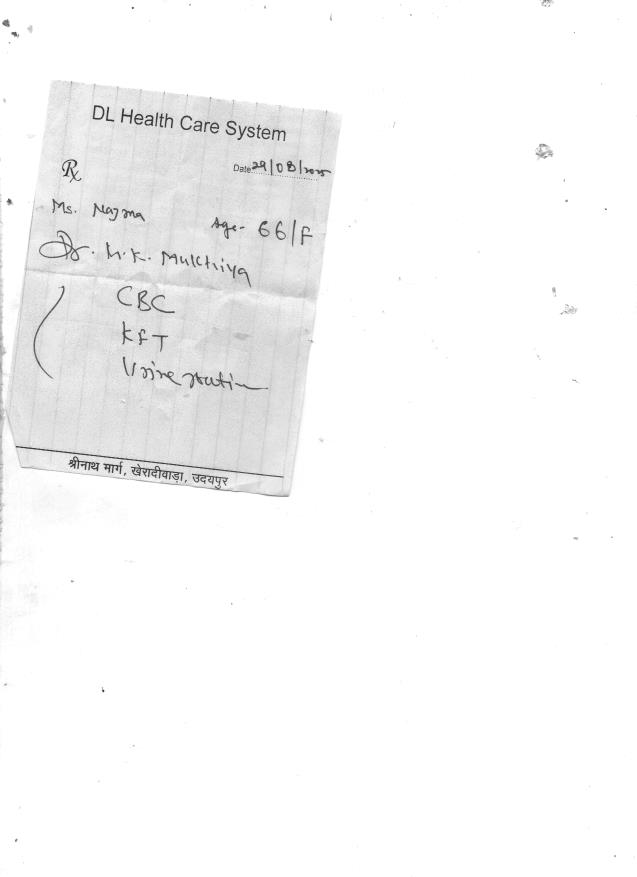 DL Health Care System
Rx
Date 29/08/2025
Ms. Najma Age- 66/F
Dr. M.K. Mukhiya
CBC
KFT
Urine routin
श्रीनाथ मार्ग, खेरादीवाड़ा, उदयपुर